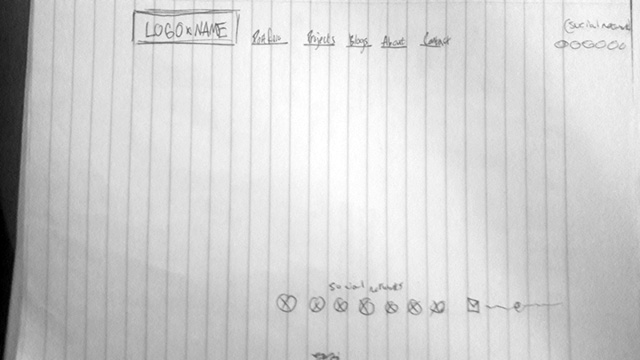 LOGO x NAME Portfolio Projects Blogs About Contact
(social network
social networks